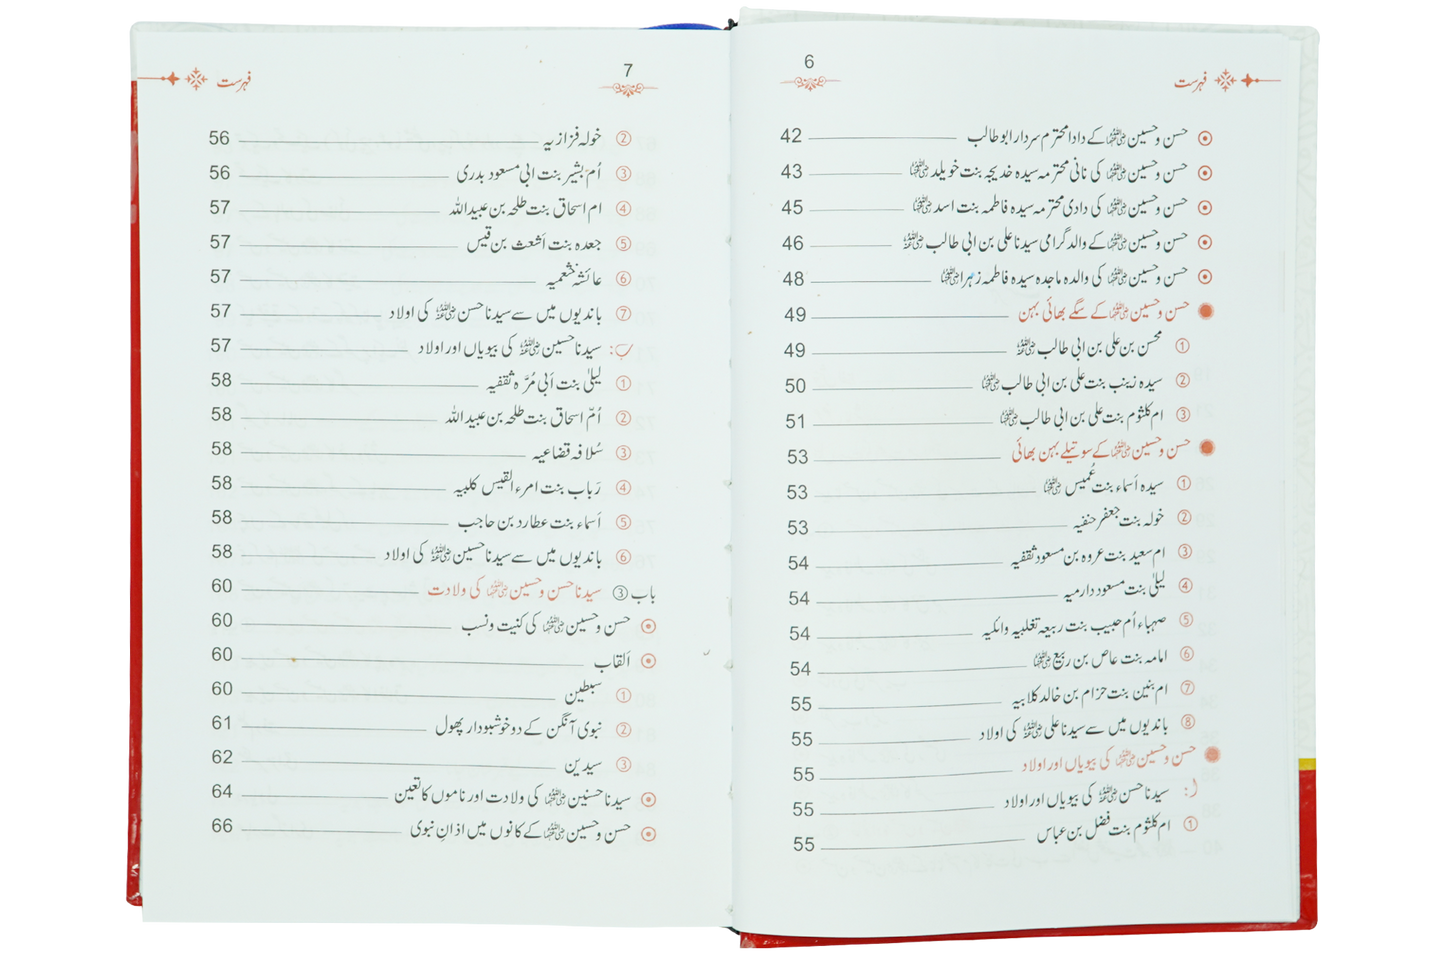 6
فہرست
حسن و حسین رضی اللہ عنہما کے دادا محترم سردار ابو طالب 42
حسن و حسین رضی اللہ عنہما کی نانی محترمہ سیدہ خدیجہ بنت خویلد رضی اللہ عنہا 43
حسن و حسین رضی اللہ عنہما کی دادی محترمہ سیدہ فاطمہ بنت اسد رضی اللہ عنہا 45
حسن و حسین رضی اللہ عنہما کے والد گرامی سیدنا علی بن ابی طالب رضی اللہ عنہ 46
حسن و حسین رضی اللہ عنہما کی والدہ ماجدہ سیدہ فاطمہ زہرا رضی اللہ عنہا 48
حسن و حسین رضی اللہ عنہما کے سگے بھائی بہن 49
① محسن بن علی بن ابی طالب رضی اللہ عنہ 49
② سیدہ زینب بنت علی بن ابی طالب رضی اللہ عنہا 50
③ ام کلثوم بنت علی بن ابی طالب رضی اللہ عنہا 51
حسن و حسین رضی اللہ عنہما کے سوتیلے بہن بھائی 53
① سیدہ اَسماء بنت عُمیس رضی اللہ عنہا 53
② خولہ بنت جعفر حنفیہ 53
③ ام سعید بنت عروہ بن مسعود ثقفیہ 54
④ لیلیٰ بنت مسعود دارمیہ 54
⑤ صہباء اُم حبیب بنت ربیعہ تغلبیہ وائلیہ 54
⑥ امامہ بنت عاص بن ربیع رضی اللہ عنہا 54
⑦ ام بنین بنت حزام بن خالد کلابیہ 55
⑧ باندیوں میں سے سیدنا علی رضی اللہ عنہ کی اولاد 55
حسن و حسین رضی اللہ عنہما کی بیویاں اور اولاد 55
ا: سیدنا حسن رضی اللہ عنہ کی بیویاں اور اولاد 55
① ام کلثوم بنت فضل بن عباس 55
7
فہرست
② خولہ فزازیہ 56
③ اُم بشیر بنت ابی مسعود بدری 56
④ ام اسحاق بنت طلحہ بن عبید اللہ 57
⑤ جعدہ بنت اَشعث بن قیس 57
⑥ عائشہ خثعمیہ 57
⑦ باندیوں میں سے سیدنا حسن رضی اللہ عنہ کی اولاد 57
ب: سیدنا حسین رضی اللہ عنہ کی بیویاں اور اولاد 57
① لیلیٰ بنت اَبی مُرَّہ ثقفیہ 58
② اُمّ اسحاق بنت طلحہ بن عبید اللہ 58
③ سُلافہ قضاعیہ 58
④ رَباب بنت امرء القیس کلبیہ 58
⑤ اَسماء بنت عطارد بن حاجب 58
⑥ باندیوں میں سے سیدنا حسین رضی اللہ عنہ کی اولاد 58
باب ③ سیدنا حسن و حسین رضی اللہ عنہما کی ولادت 60
حسن و حسین رضی اللہ عنہما کی کنیت و نسب 60
اَلقاب 60
① سبطین 60
② نبوی آنگن کے دو خوشبودار پھول 61
③ سیدین 62
سیدنا حسنین رضی اللہ عنہما کی ولادت اور ناموں کا تعین 64
حسن و حسین رضی اللہ عنہما کے کانوں میں اذانِ نبوی 66